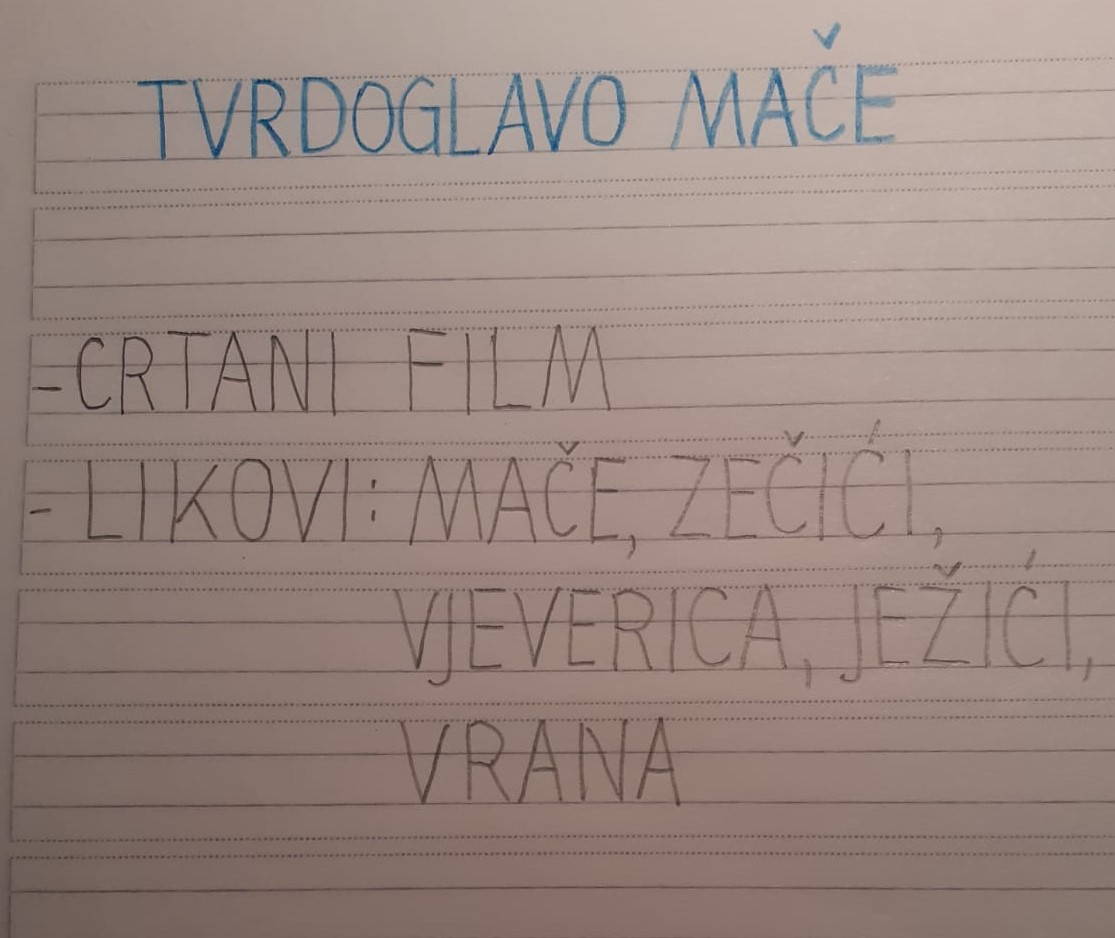 TVRDOGLAVO MAČE
-CRTANI FILM
- LIKOVI: MAČE, ZEČIĆI,
VJEVERICA, JEŽIĆI,
VRANA